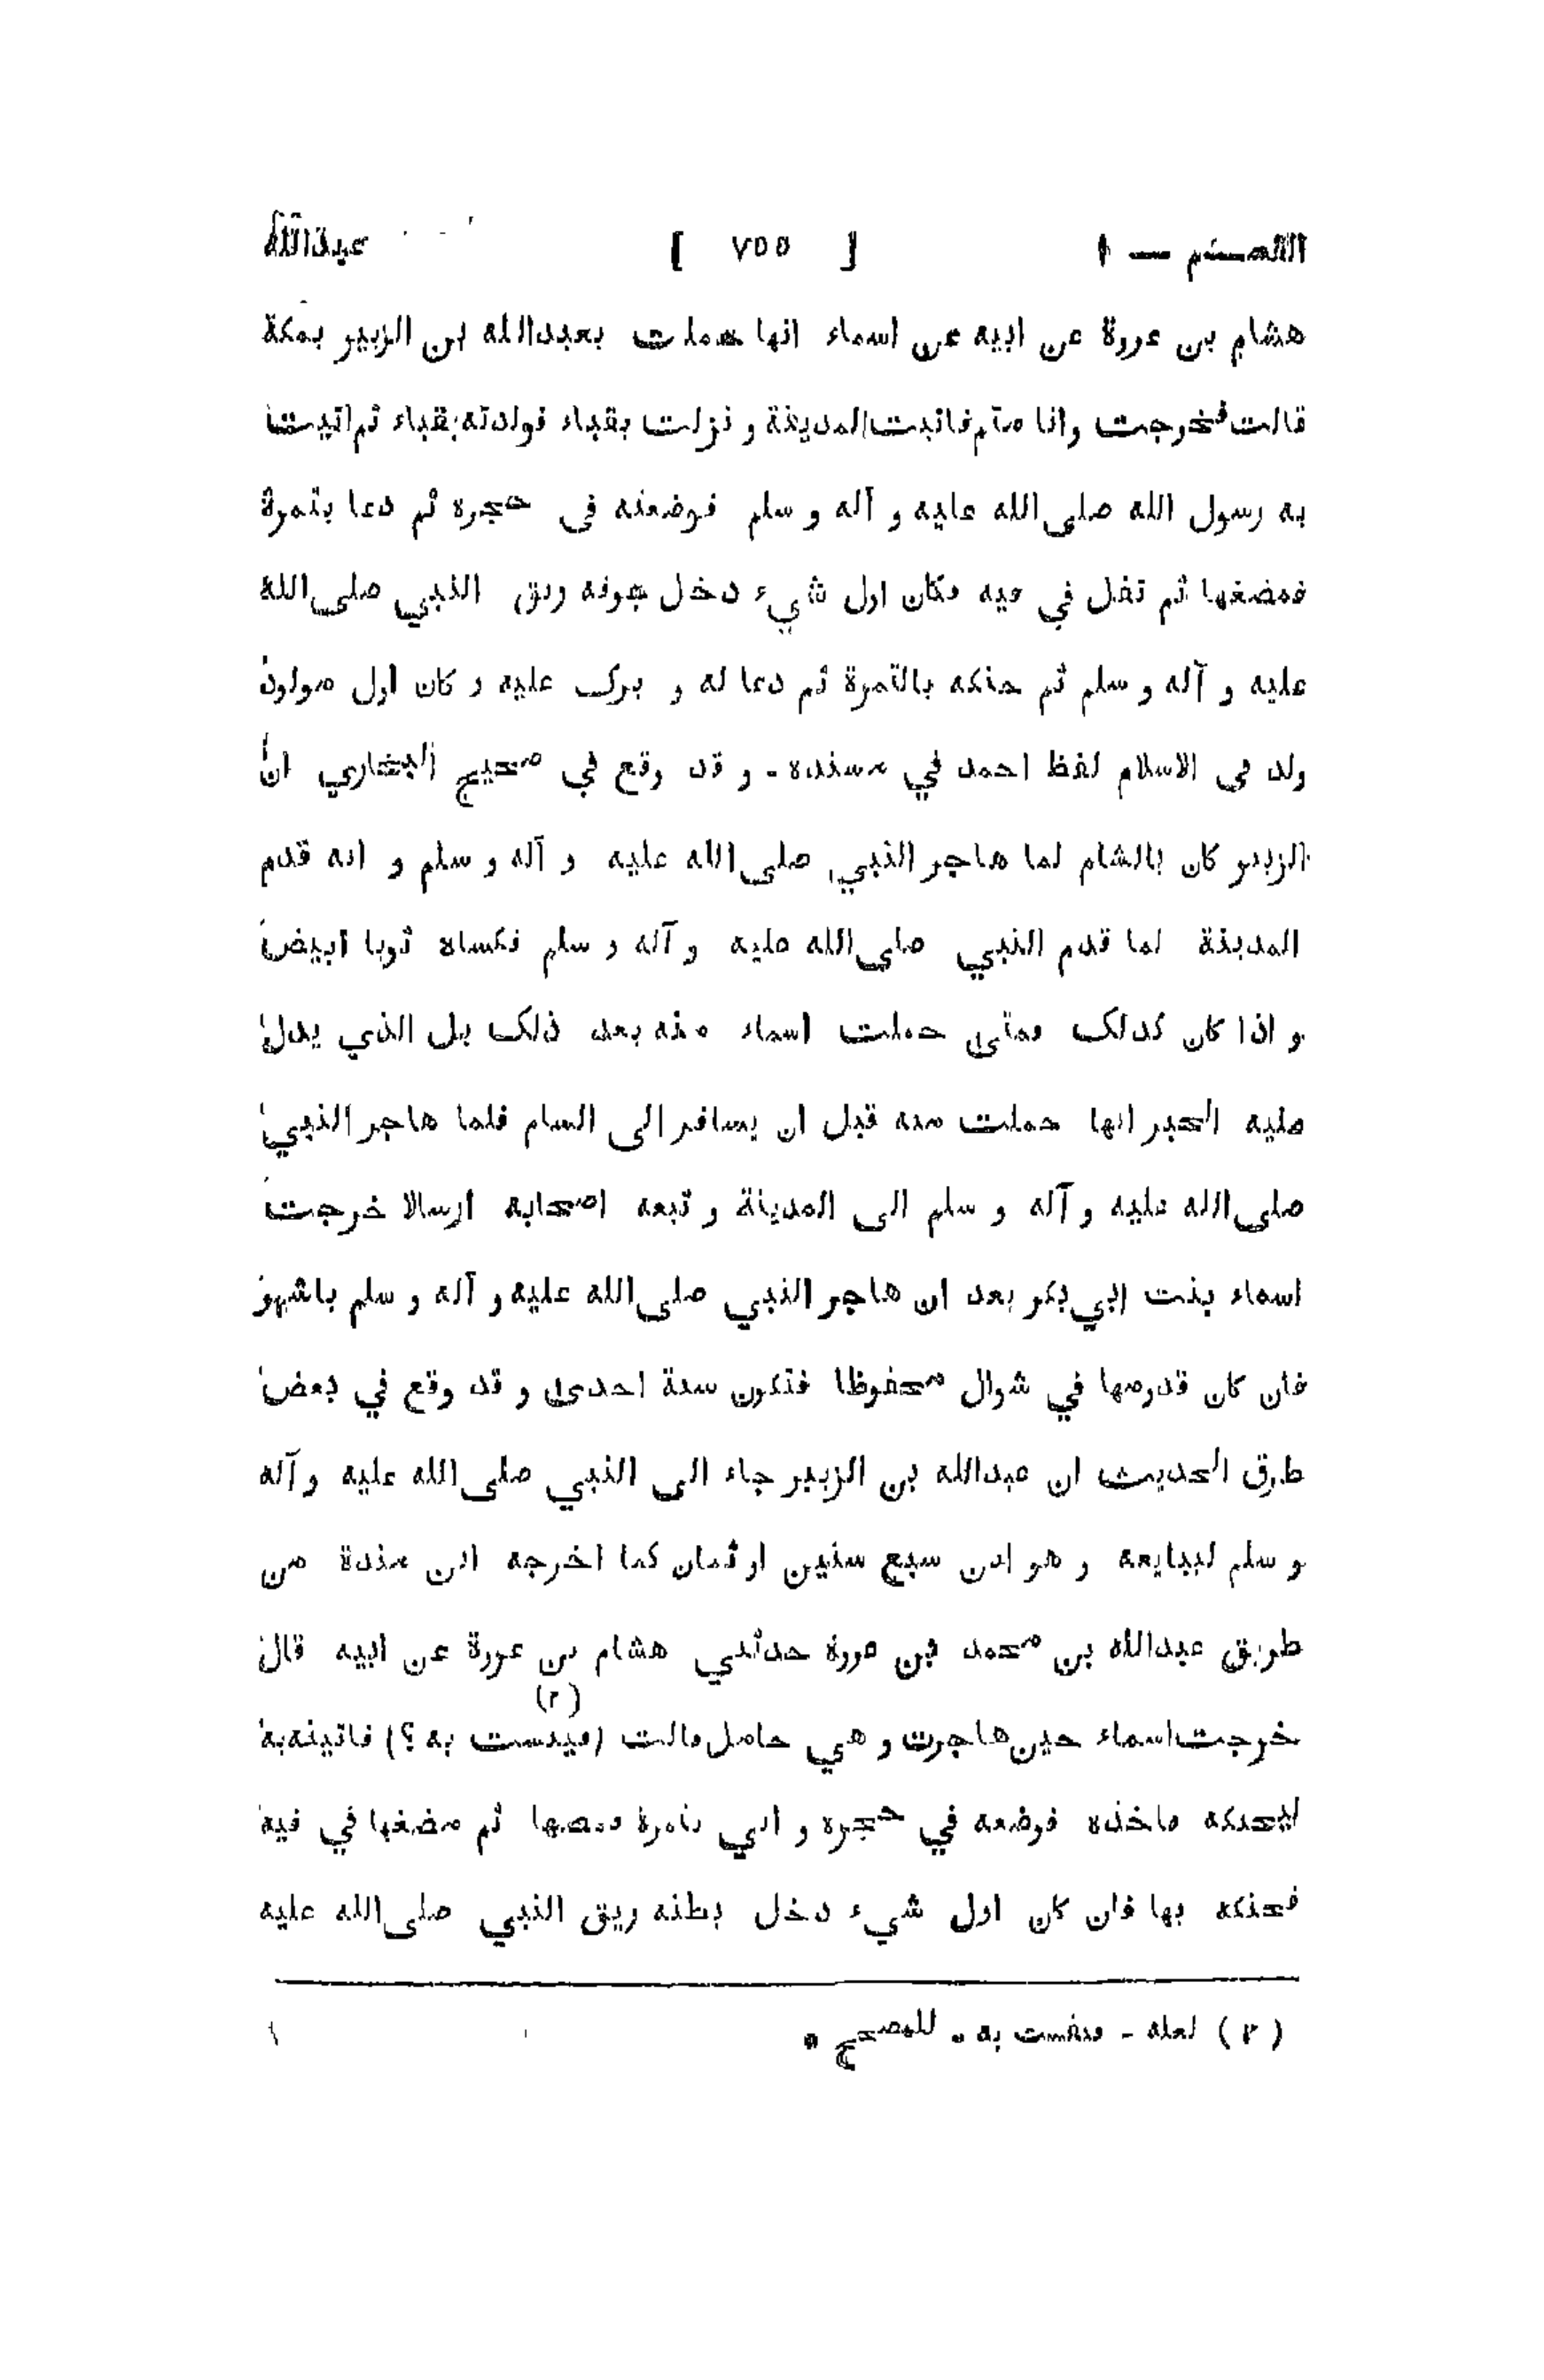 القسم — ١ [ ٧٥٥ ] عبدالله
هشام بن عروة عن ابيه عن اسماء انها حملت بعبدالله ابن الزبير بمكة
قالت فخرجت وانا متم فاتيت المدينة و نزلت بقباء فولدته بقباء ثم اتيت
به رسول الله صلى الله عليه و آله و سلم فوضعته فى حجره ثم دعا بتمرة
فمضغها ثم تفل في فيه فكان اول شيء دخل جوفه ريق النبي صلى الله
عليه و آله و سلم ثم حنكه بالتمرة ثم دعا له و برك عليه و كان اول مولود
ولد فى الاسلام لفظ احمد في مسنده - و قد وقع في صحيح البخاري ان
الزبير كان بالشام لما هاجر النبي صلى الله عليه و آله و سلم و انه قدم
المدينة لما قدم النبي صلى الله عليه و آله و سلم فكساه ثوبا ابيض
و اذا كان كذلك فمتى حملت اسماء منه بعد ذلك بل الذي يدل
عليه الخبر انها حملت منه قبل ان يسافر الى الشام فلما هاجر النبي
صلى الله عليه و آله و سلم الى المدينة و تبعه اصحابه ارسالا خرجت
اسماء بنت ابي بكر بعد ان هاجر النبي صلى الله عليه و آله و سلم باشهر
فان كان قدومها في شوال محفوظا فتكون سنة احدى و قد وقع في بعض
طرق الحديث ان عبدالله بن الزبير جاء الى النبي صلى الله عليه و آله
و سلم ليبايعه و هو ابن سبع سنين او ثمان كما اخرجه ابن مندة من
طريق عبدالله بن محمد بن عروة حدثني هشام بن عروة عن ابيه قال
خرجت اسماء حين هاجرت و هي حامل قالت (فيدست به ؟) (٢) فاتيته به
ليحنكه فاخذه فوضعه في حجره و اتي بتمرة فمصها ثم مضغها في فيه
فحنكه بها فان كان اول شيء دخل بطنه ريق النبي صلى الله عليه
(٢) لعله - فنفست به - للمصحح *